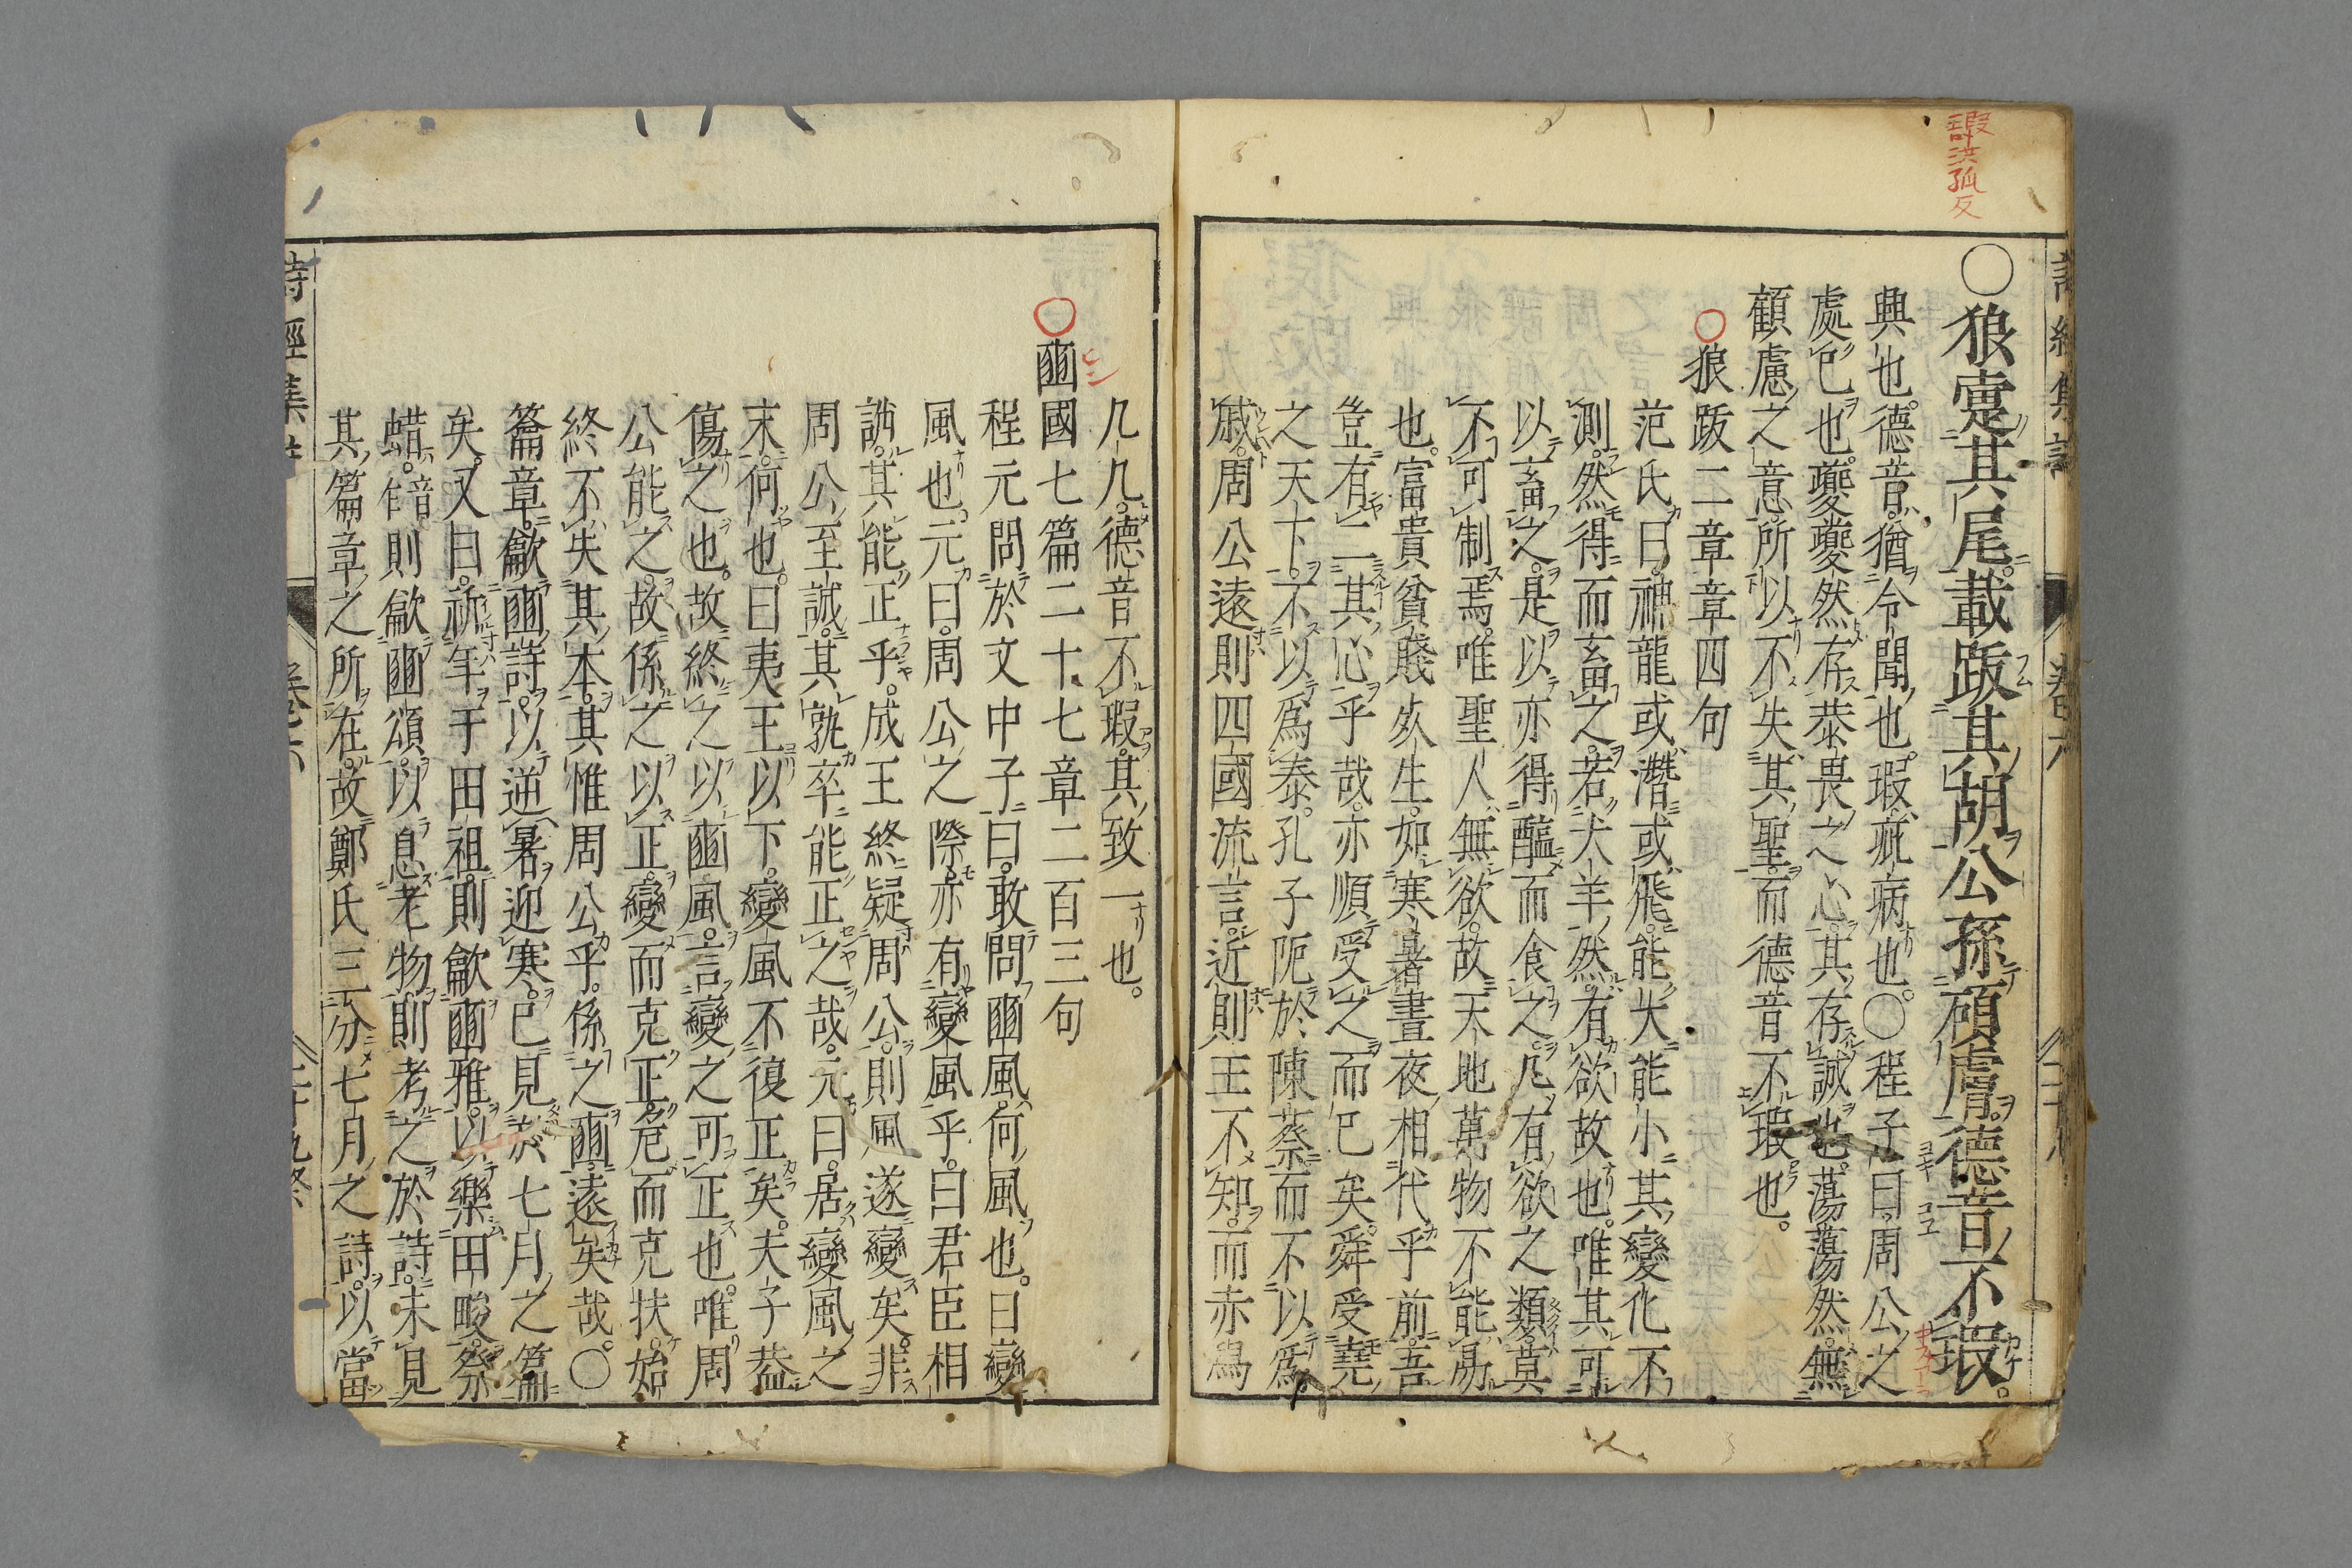 ○狼疐其尾載跋其胡公孫碩膚德音不瑕
興也德音猶令聞也瑕疵病也○程子曰周公之
處已也夔夔然存恭畏之心其存誠也蕩蕩然無
顧慮之意所以不失其聖而德音不瑕也
○狼跋二章章四句
范氏曰神龍或潛或飛能大能小其變化不
測然得而畜之若犬羊然有欲故也唯其可
以畜之是以亦得醢而食之凡有欲之類莫
不可制焉唯聖人無欲故天地萬物不能易
也富貴貧賤死生如寒暑晝夜相代乎前吾
豈有二其心乎哉亦順受之而已矣舜受堯
之天下不以爲泰孔子阨於陳蔡而不以爲
戚周公遠則四國流言近則王不知而赤舄
几几德音不瑕其致一也
○豳國七篇二十七章二百三句
程元問於文中子曰敢問豳風何風也曰變
風也元曰周公之際亦有變風乎曰君臣相
誚其能正乎成王終疑周公則風遂變矣非
周公至誠其孰卒能正之哉元曰居變風之
末何也曰夷王以下變風不復正矣夫子蓋
傷之也故終之以豳風言變之可正也唯周
公能之故係之以正變而克正危而克扶始
終不失其本其惟周公乎係之豳遠矣哉○
籥章龡豳詩以逆暑迎寒已見於七月之篇
矣又曰祈年于田祖則龡豳雅以樂田畯祭
蜡則龡豳頌以息老物則考之於詩未見
其篇章之所在故鄭氏三分七月之詩以當
詩經集
卷六